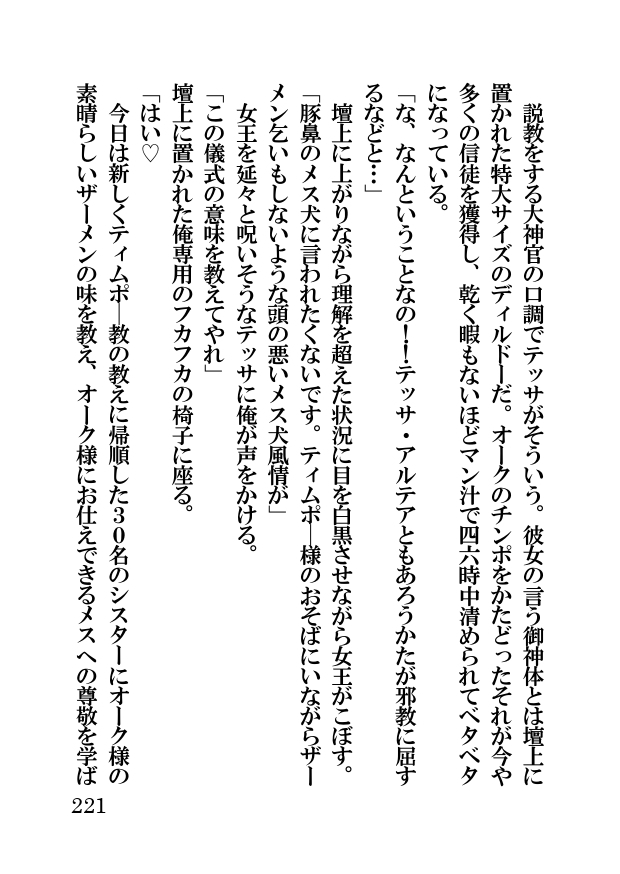 説教をする大神官の口調でテッサがそういう。彼女の言う御神体とは壇上に
置かれた特大サイズのディルドーだ。オークのチンポをかたどったそれが今や
多くの信徒を獲得し、乾く暇もないほどマン汁で四六時中清められてベタベタ
になっている。
「な、なんということなの！！テッサ・アルテアともあろうかたが邪教に屈す
るなどと…」
　壇上に上がりながら理解を超えた状況に目を白黒させながら女王がこぼす。
「豚鼻のメス犬に言われたくないです。ティムポ―様のおそばにいながらザー
メン乞いもしないような頭の悪いメス犬風情が」
　女王を延々と呪いそうなテッサに俺が声をかける。
「この儀式の意味を教えてやれ」
壇上に置かれた俺専用のフカフカの椅子に座る。
「はい♡
　今日は新しくティムポ―教の教えに帰順した３０名のシスターにオーク様の
素晴らしいザーメンの味を教え、オーク様にお仕えできるメスへの尊敬を学ば
221